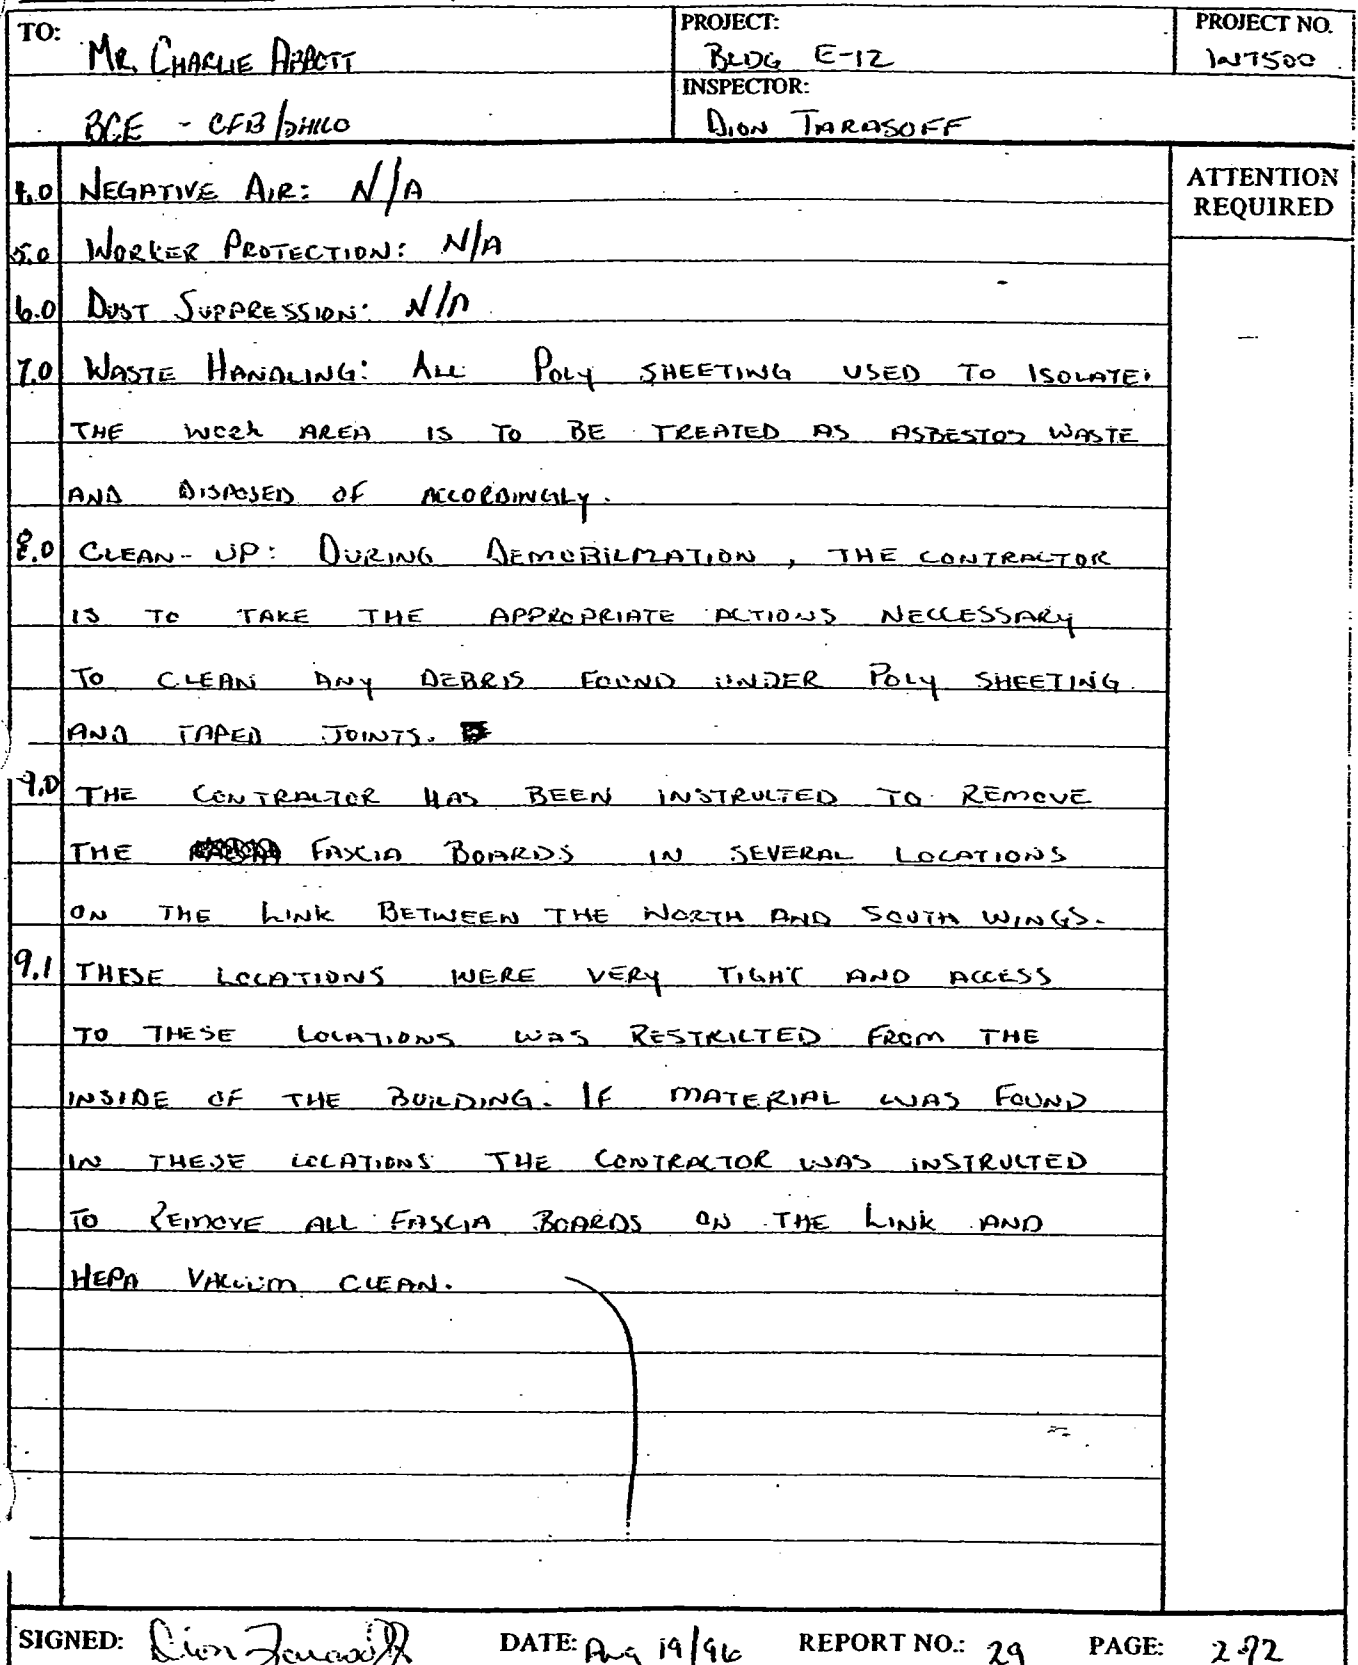 TO: MR. CHARLIE ABBOTT
PROJECT: BLDG E-12
PROJECT NO.
BCE - CFB
INSPECTOR: DION TARASOFF
ATTENTION REQUIRED
4.0 NEGATIVE AIR: N/A
5.0 WORKER PROTECTION: N/A
6.0 DUST SUPPRESSION: N/A
7.0 WASTE HANDLING: ALL POLY SHEETING USED TO ISOLATE
THE WORK AREA IS TO BE TREATED AS ASBESTOS WASTE
AND DISPOSED OF ACCORDINGLY.
8.0 CLEAN-UP: DURING DEMOBILIZATION, THE CONTRACTOR
IS TO TAKE THE APPROPRIATE ACTIONS NECCESSARY
TO CLEAN ANY DEBRIS FOUND UNDER POLY SHEETING
AND TAPED JOINTS.
9.0 THE CONTRACTOR HAS BEEN INSTRUCTED TO REMOVE
THE FASCIA BOARDS IN SEVERAL LOCATIONS
ON THE LINK BETWEEN THE NORTH AND SOUTH WINGS.
9.1 THESE LOCATIONS WERE VERY TIGHT AND ACCESS
TO THESE LOCATIONS WAS RESTRICTED FROM THE
INSIDE OF THE BUILDING. IF MATERIAL WAS FOUND
IN THESE LOCATIONS THE CONTRACTOR WAS INSTRUCTED
TO REMOVE ALL FASCIA BOARDS ON THE LINK AND
HEPA VACUUM CLEAN.
SIGNED: Dion Tarasoff DATE: Aug 19/96 REPORT NO.: 29 PAGE: 2 of 2